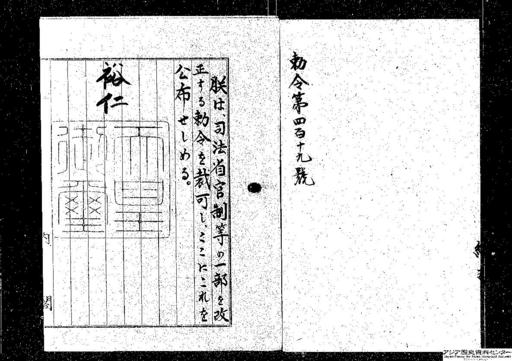 勅令第四百十九號
朕は、司法省官制等の一部を改
正する勅令を裁可し、ここにこれを
公布せしめる。
裕仁
天皇御璽
内閣
アジア歴史資料センター